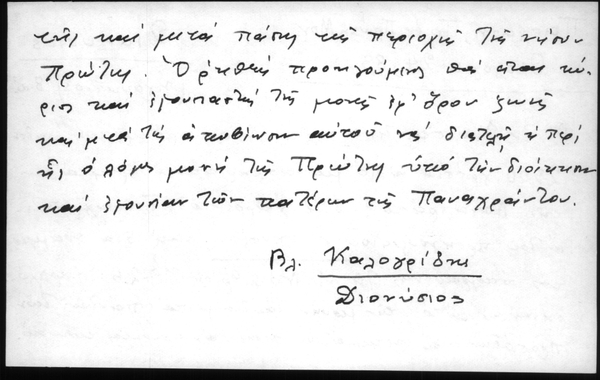 τῆς καὶ μετὰ πάσης τῆς περιοχῆς τῆς νήσου
Πρώτης. Ὁ ρηθεὶς προηγούμενος θὰ εἶναι κύ-
ριος καὶ ἐξουσιαστὴς τῆς μονῆς ἐφ' ὅρου ζωῆς
καὶ μετὰ τὴν ἀποβίωσιν αὐτοῦ νὰ διατελῇ ἡ περὶ
ἧς ὁ λόγος μονὴ τῆς Πρώτης ὑπὸ τὴν διοίκησιν
καὶ ἐξουσίαν τῶν πατέρων τῆς Παναχράντου.
Βλ. Καλογρίδης
Διονύσιος